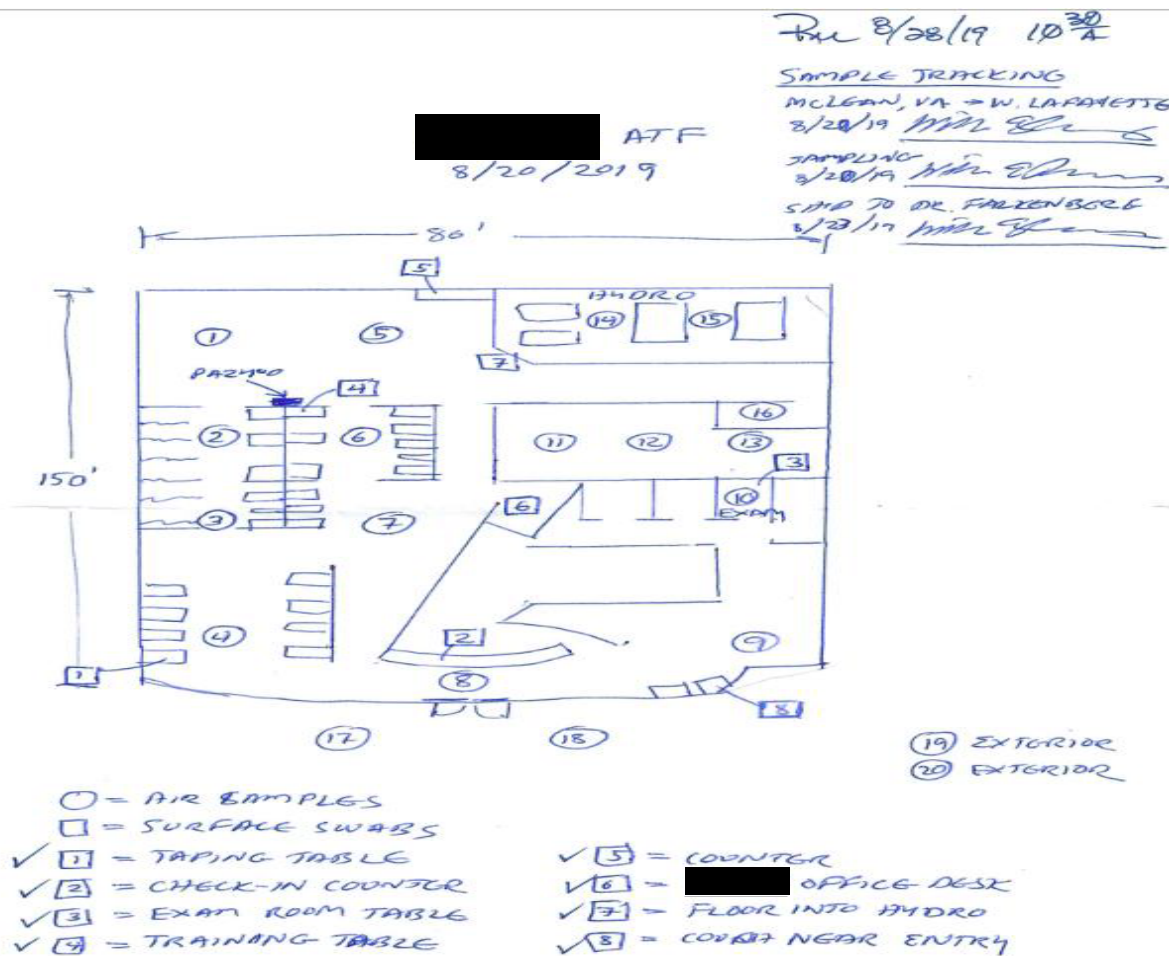 8/28/19 10 30 A
SAMPLE TRACKING
MCLEAN, VA → W. LAFAYETTE
8/20/19
SAMPLING
8/20/19
SHIP TO DR. FALKENBERG
8/23/19
ATF
8/20/2019
86'
5
HYDRO
14 15
1 5
7
PAZ400
4
16
2 6 11 12 13
3
150'
10
6
3 7 EXAM
2
4 9
1
8
8
17 18
19 EXTERIOR
20 EXTERIOR
○ = AIR SAMPLES
□ = SURFACE SWABS
✓ 1 = TAPING TABLE
✓ 2 = CHECK-IN COUNTER
✓ 3 = EXAM ROOM TABLE
✓ 4 = TRAINING TABLE
✓ 5 = COUNTER
✓ 6 = OFFICE DESK
✓ 7 = FLOOR INTO HYDRO
✓ 8 = COUCH NEAR ENTRY